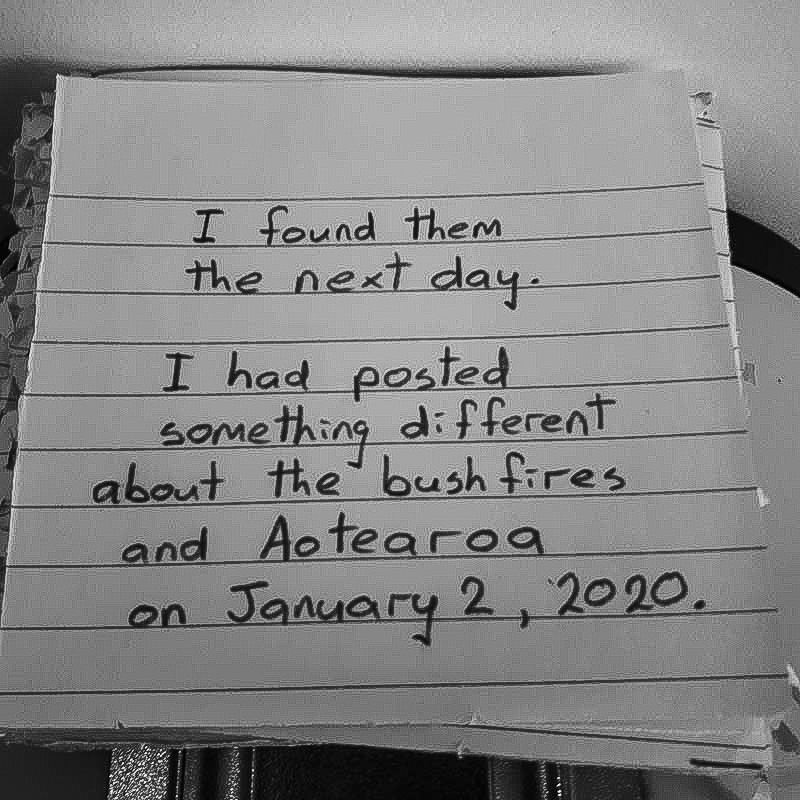 I found them
the next day.
I had posted
something different
about the bushfires
and Aotearoa
on January 2, 2020.